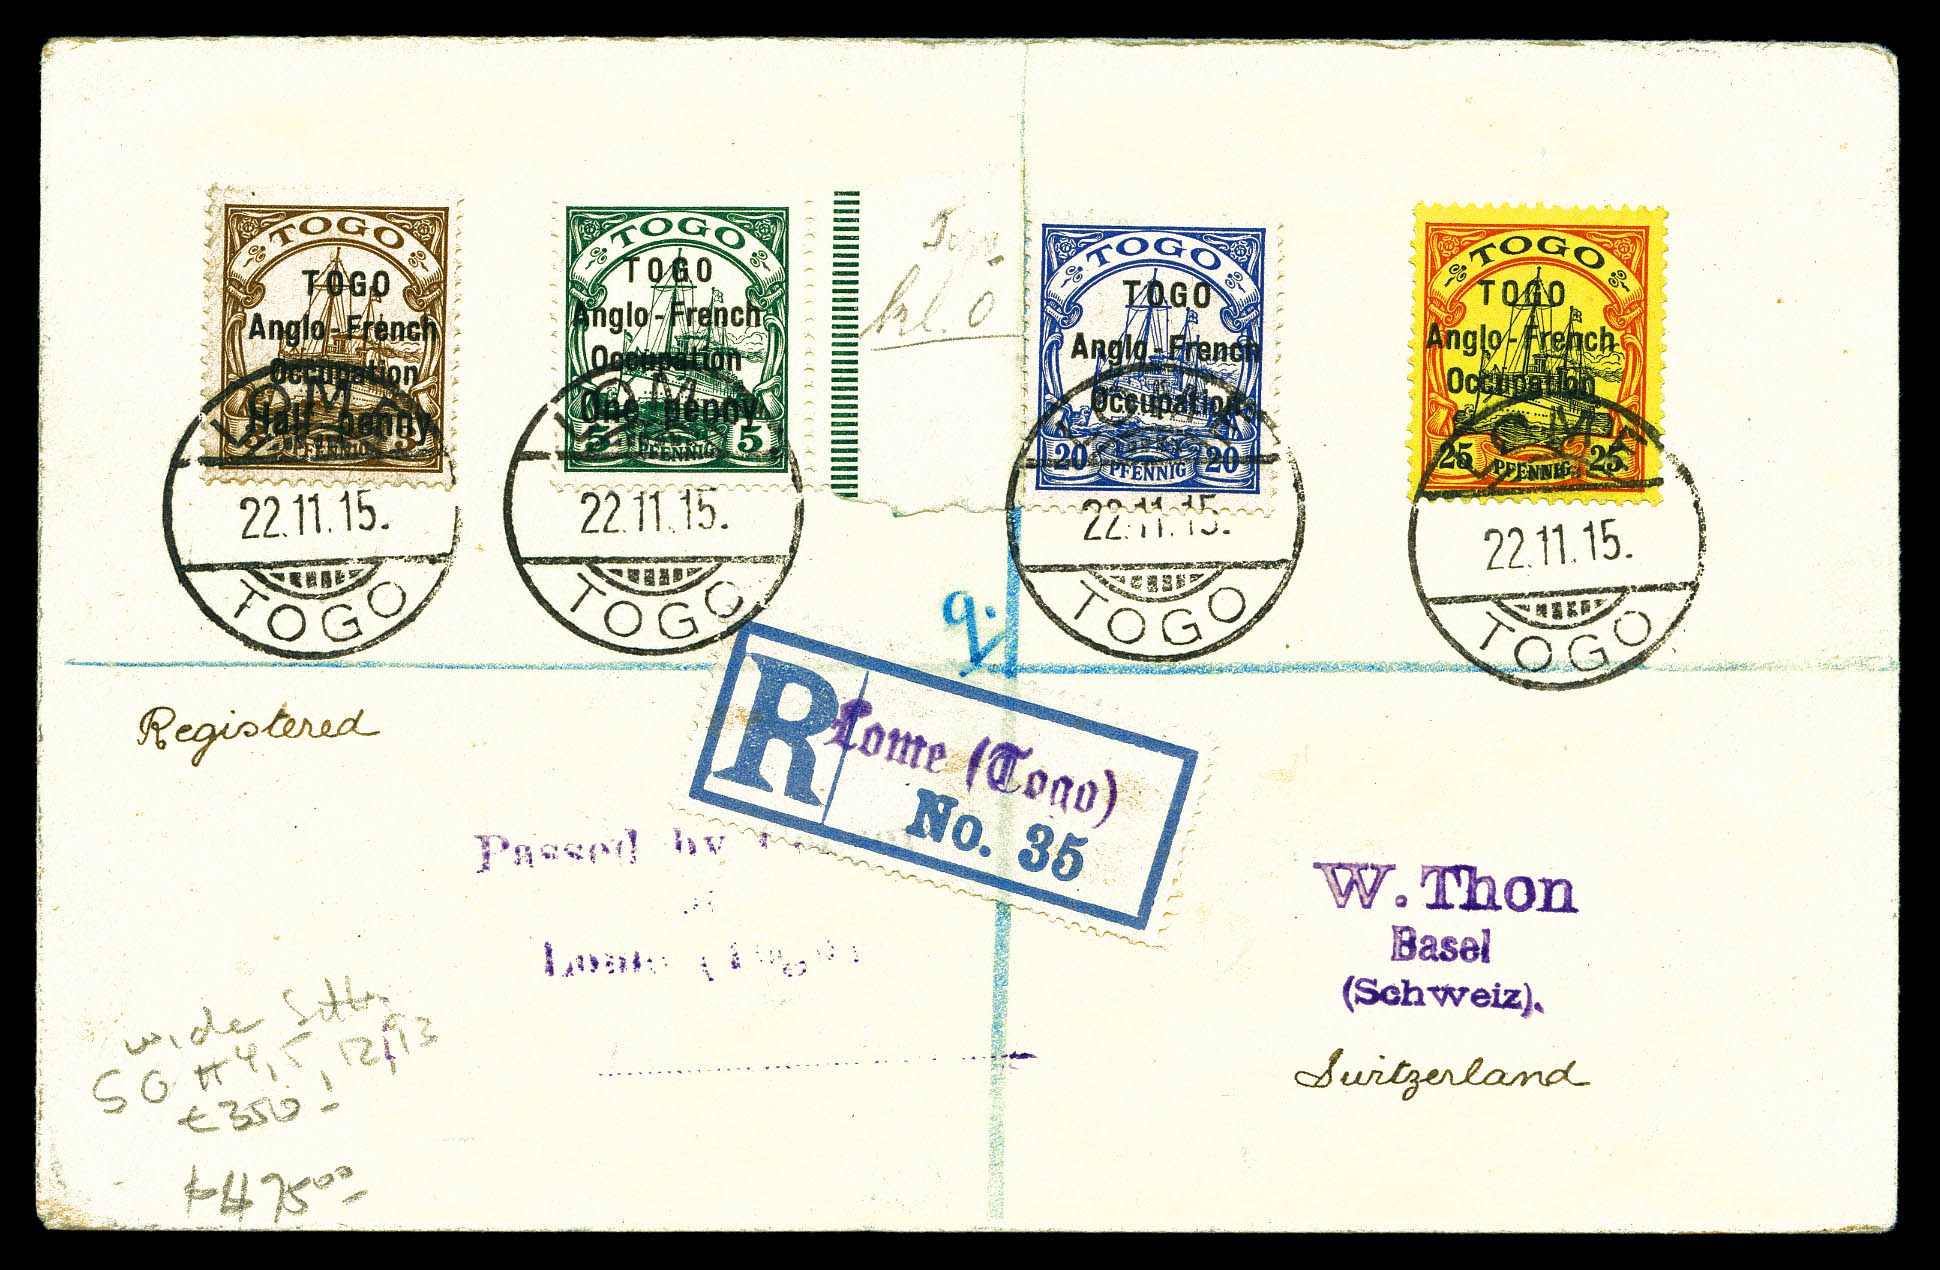 TOGO
TOGO
Anglo-French
Occupation
Half penny
3 PFENNIG 3
TOGO
TOGO
Anglo-French
Occupation
One penny
5 PFENNIG 5
TOGO
TOGO
Anglo-French
Occupation
20 PFENNIG 20
TOGO
TOGO
Anglo-French
Occupation
25 PFENNIG 25
LOME
22.11.15.
TOGO
LOME
22.11.15.
TOGO
LOME
22.11.15.
TOGO
LOME
22.11.15.
TOGO
Registered
R Lome (Togo)
No. 35
Passed by
W. Thon
Basel
(Schweiz).
Switzerland
wide
SG H4, 5, 12, 13
£350